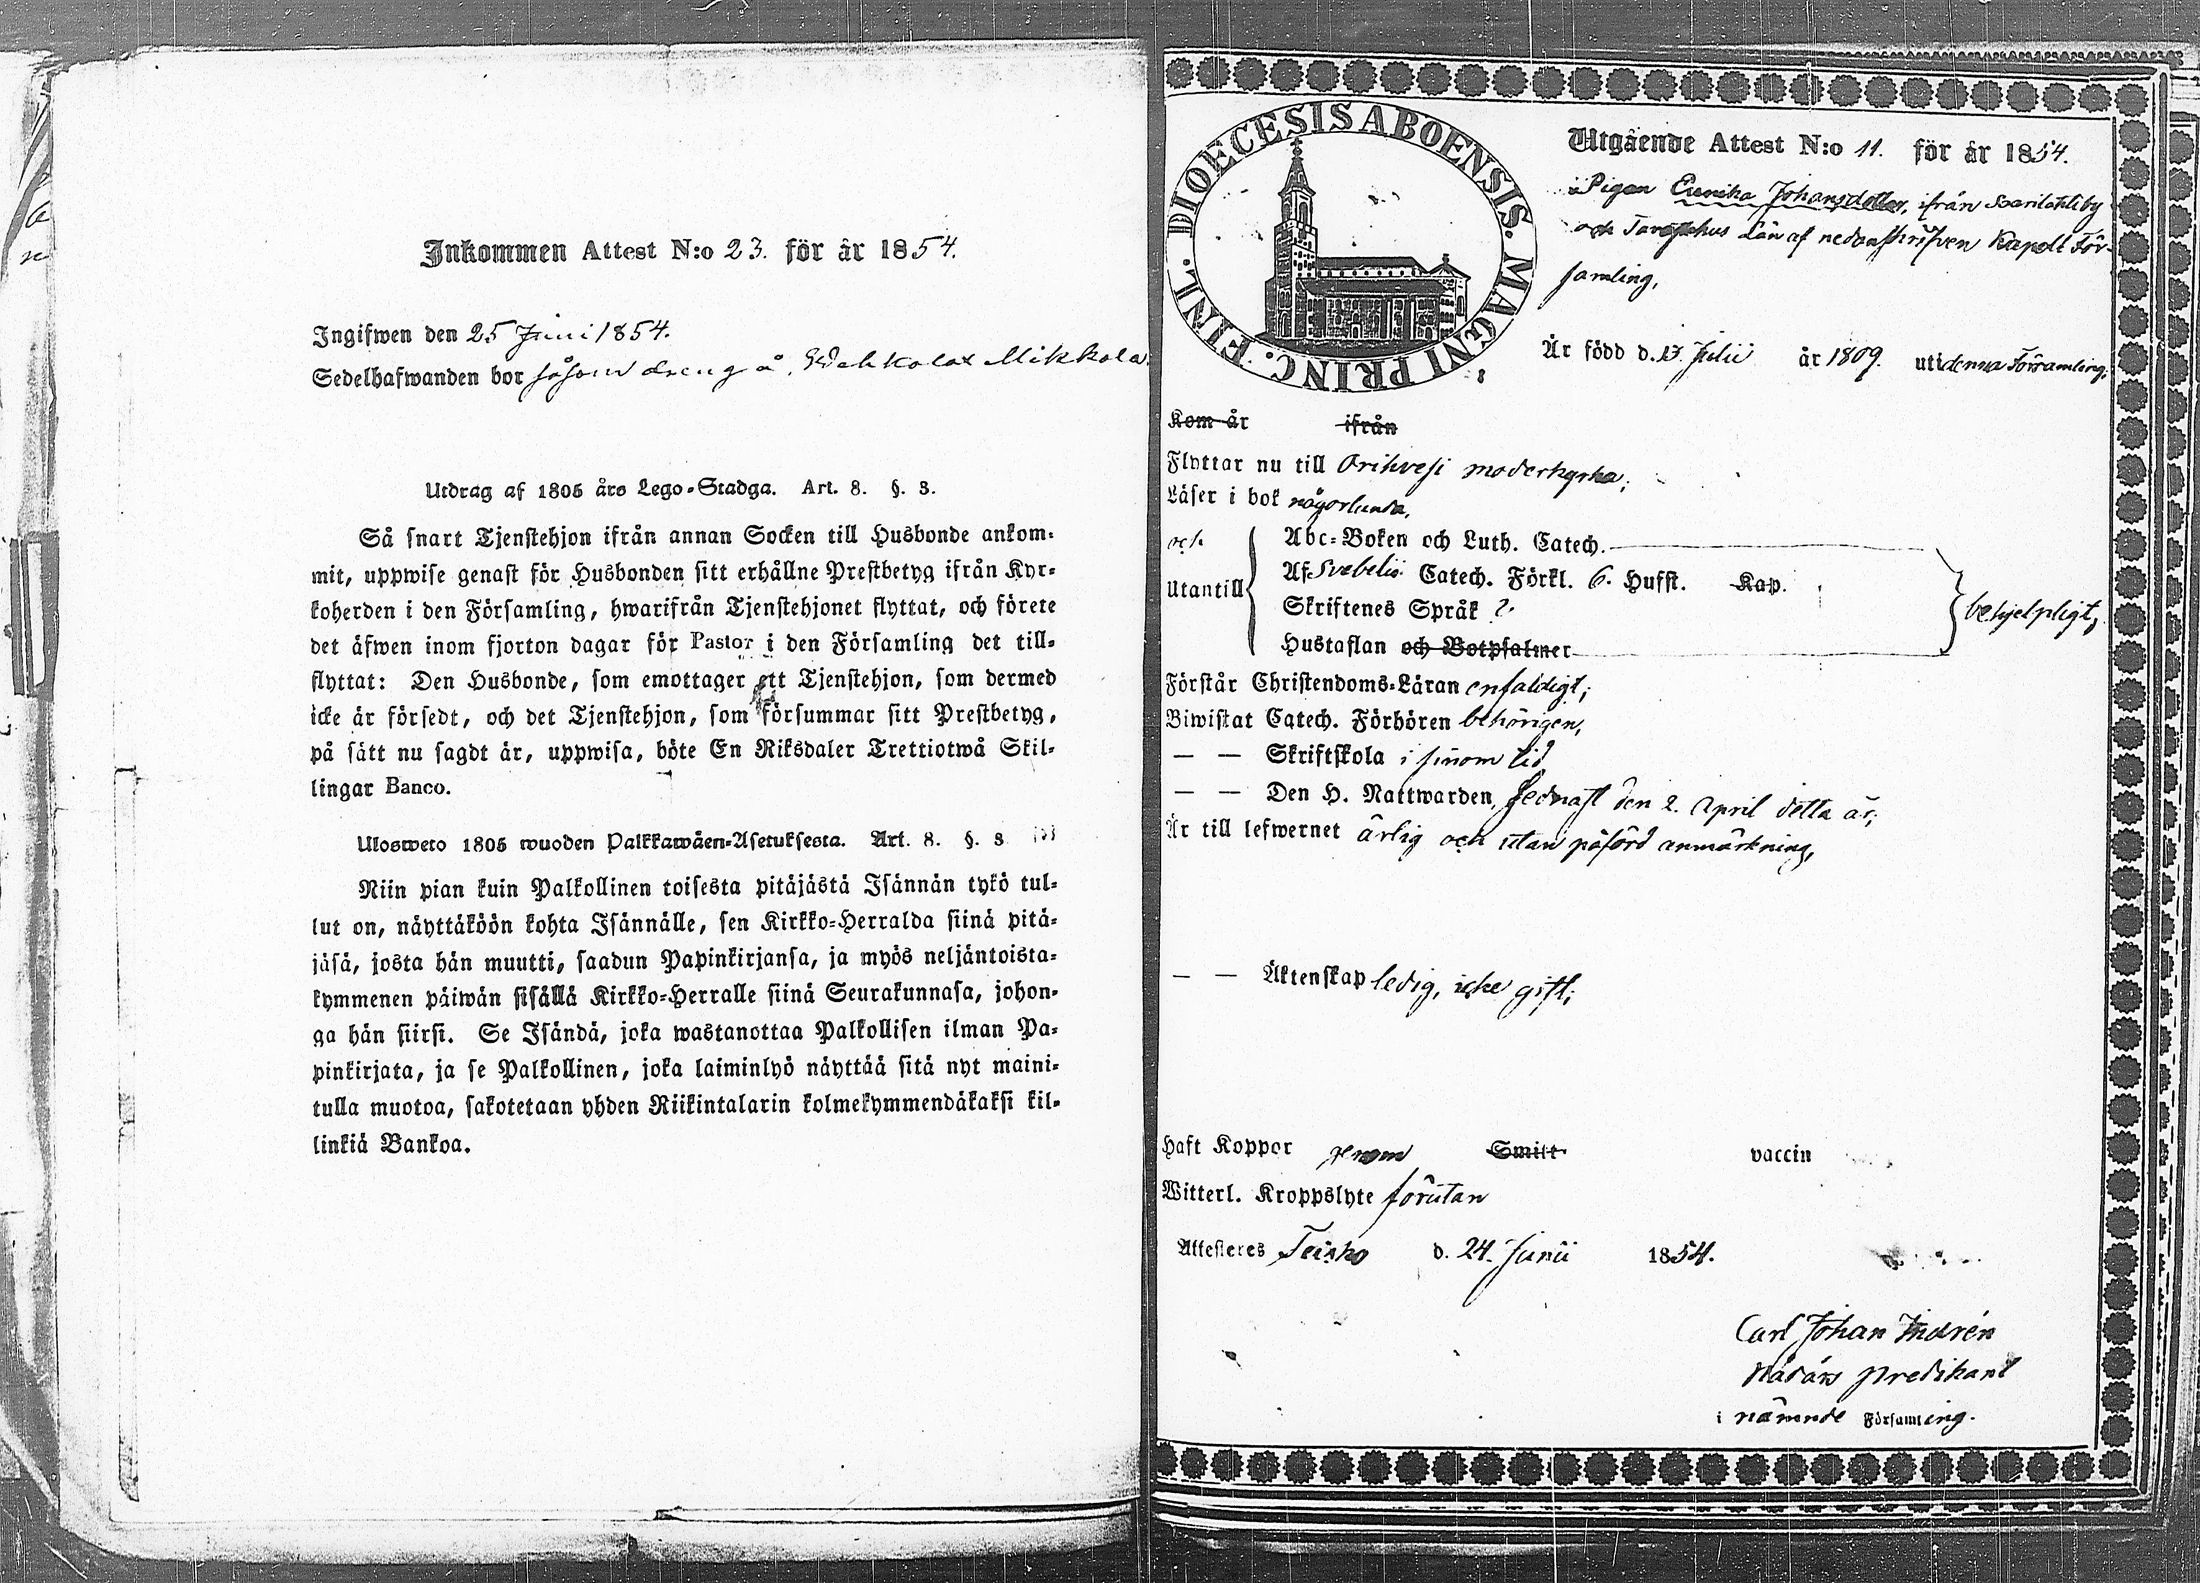 Inkommen Attest N:o 23. för år 1854.
Ingifwen den 25 Juni 1854.
Sedelhafwanden bor såsom dreng å Mikkola
Utdrag af 1805 års Lego-Stadga. Art. 8. §. 3.
Så snart Tjenstehjon ifrån annan Socken till Husbonde ankom-
mit, uppwise genast för Husbonden sitt erhållne Prestbetyg ifrån Kyr-
koherden i den Församling, hwarifrån Tjenstehjonet flyttat, och förete
det äfwen inom fjorton dagar för Pastor i den Församling det till-
flyttat: Den Husbonde, som emottager ett Tjenstehjon, som dermed
icke är försedt, och det Tjenstehjon, som försummar sitt Prestbetyg,
på sätt nu sagdt är, uppwisa, böte En Riksdaler Trettiotwå Skil-
lingar Banco.
Ulosweto 1805 wuoden Palkkawäen-Asetuksesta. Art. 8. §. 3
Niin pian kuin Palkollinen toisesta pitäjästä Isännän tykö tul-
lut on, näyttäköön kohta Isännälle, sen Kirkko-Herralda siinä pitä-
jäsä, josta hän muutti, saadun Papinkirjansa, ja myös neljäntoista-
kymmenen päiwän sisällä Kirkko-Herralle siinä Seurakunnasa, johon-
ga hän siirsi. Se Isändä, joka wastanottaa Palkollisen ilman Pa-
pinkirjata, ja se Palkollinen, joka laiminlyö näyttää sitä nyt maini-
tulla muotoa, sakotetaan yhden Riikintalarin kolmekymmendäkaksi kil-
linkiä Bankoa.
DIOECESIS ABOENSIS. MAGNI PRINC. FINL.
Utgående Attest N:o 11. för år 1854.
Pigan Johansdotter, ifrån by
och Tavastehus Län af nedanskrifven Kapell För-
samling,
Är född d. 17. Julii år 1809. uti denna Församling,
Kom år ifrån
Flyttar nu till Orihvesi moderkyrka;
Läser i bok någorlunda,
och
Utantill
Abc-Boken och Luth. Catech.
Af Svebelii Catech. Förkl. 6. Hufst. Kap.
Skriftenes Språk 2.
Hustaflan och Botpsalmer
behjelpligt,
Förstår Christendoms-Läran enfaldigt;
Biwistat Catech. Förhören behörigen,
— — Skriftskola i sinom tid
— — Den H. Nattwarden, sednast den 2. April detta år;
Är till lefwernet ärlig och utan påförd anmärkning,
— — Äktenskap ledig, icke gift;
Haft Koppor genom Smitt vaccin
Witterl. Kroppslyte förutan
Attesteres Teisko d. 24. Junii 1854.
Carl Johan Indrén
Nådårs Predikant
i nämnde Församling.